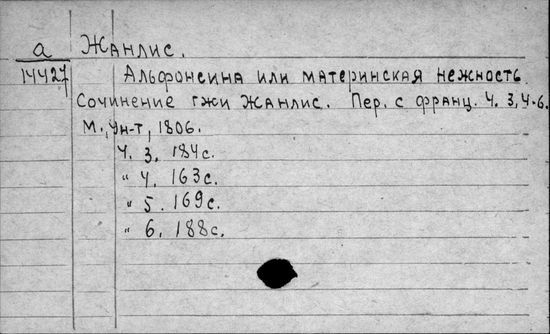 а Жанлис.
14427 Альфонсина или материнская нежность
Сочинение гжи Жанлис. Пер. с франц. Ч. 3, 4-6.
М., Ун-т, 1806.
Ч. 3. 184с.
" 4. 163с.
" 5. 169с.
" 6. 188с.